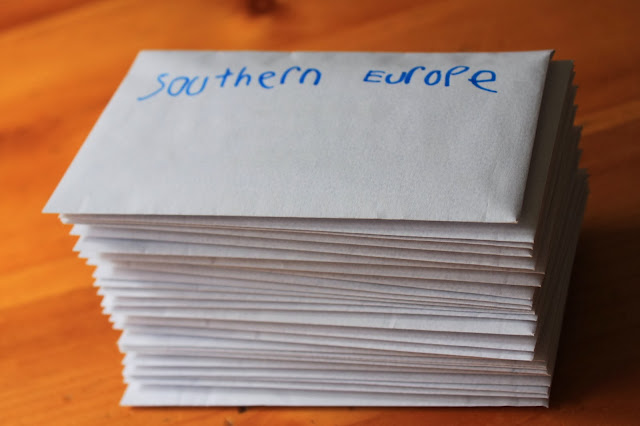 Southern Europe